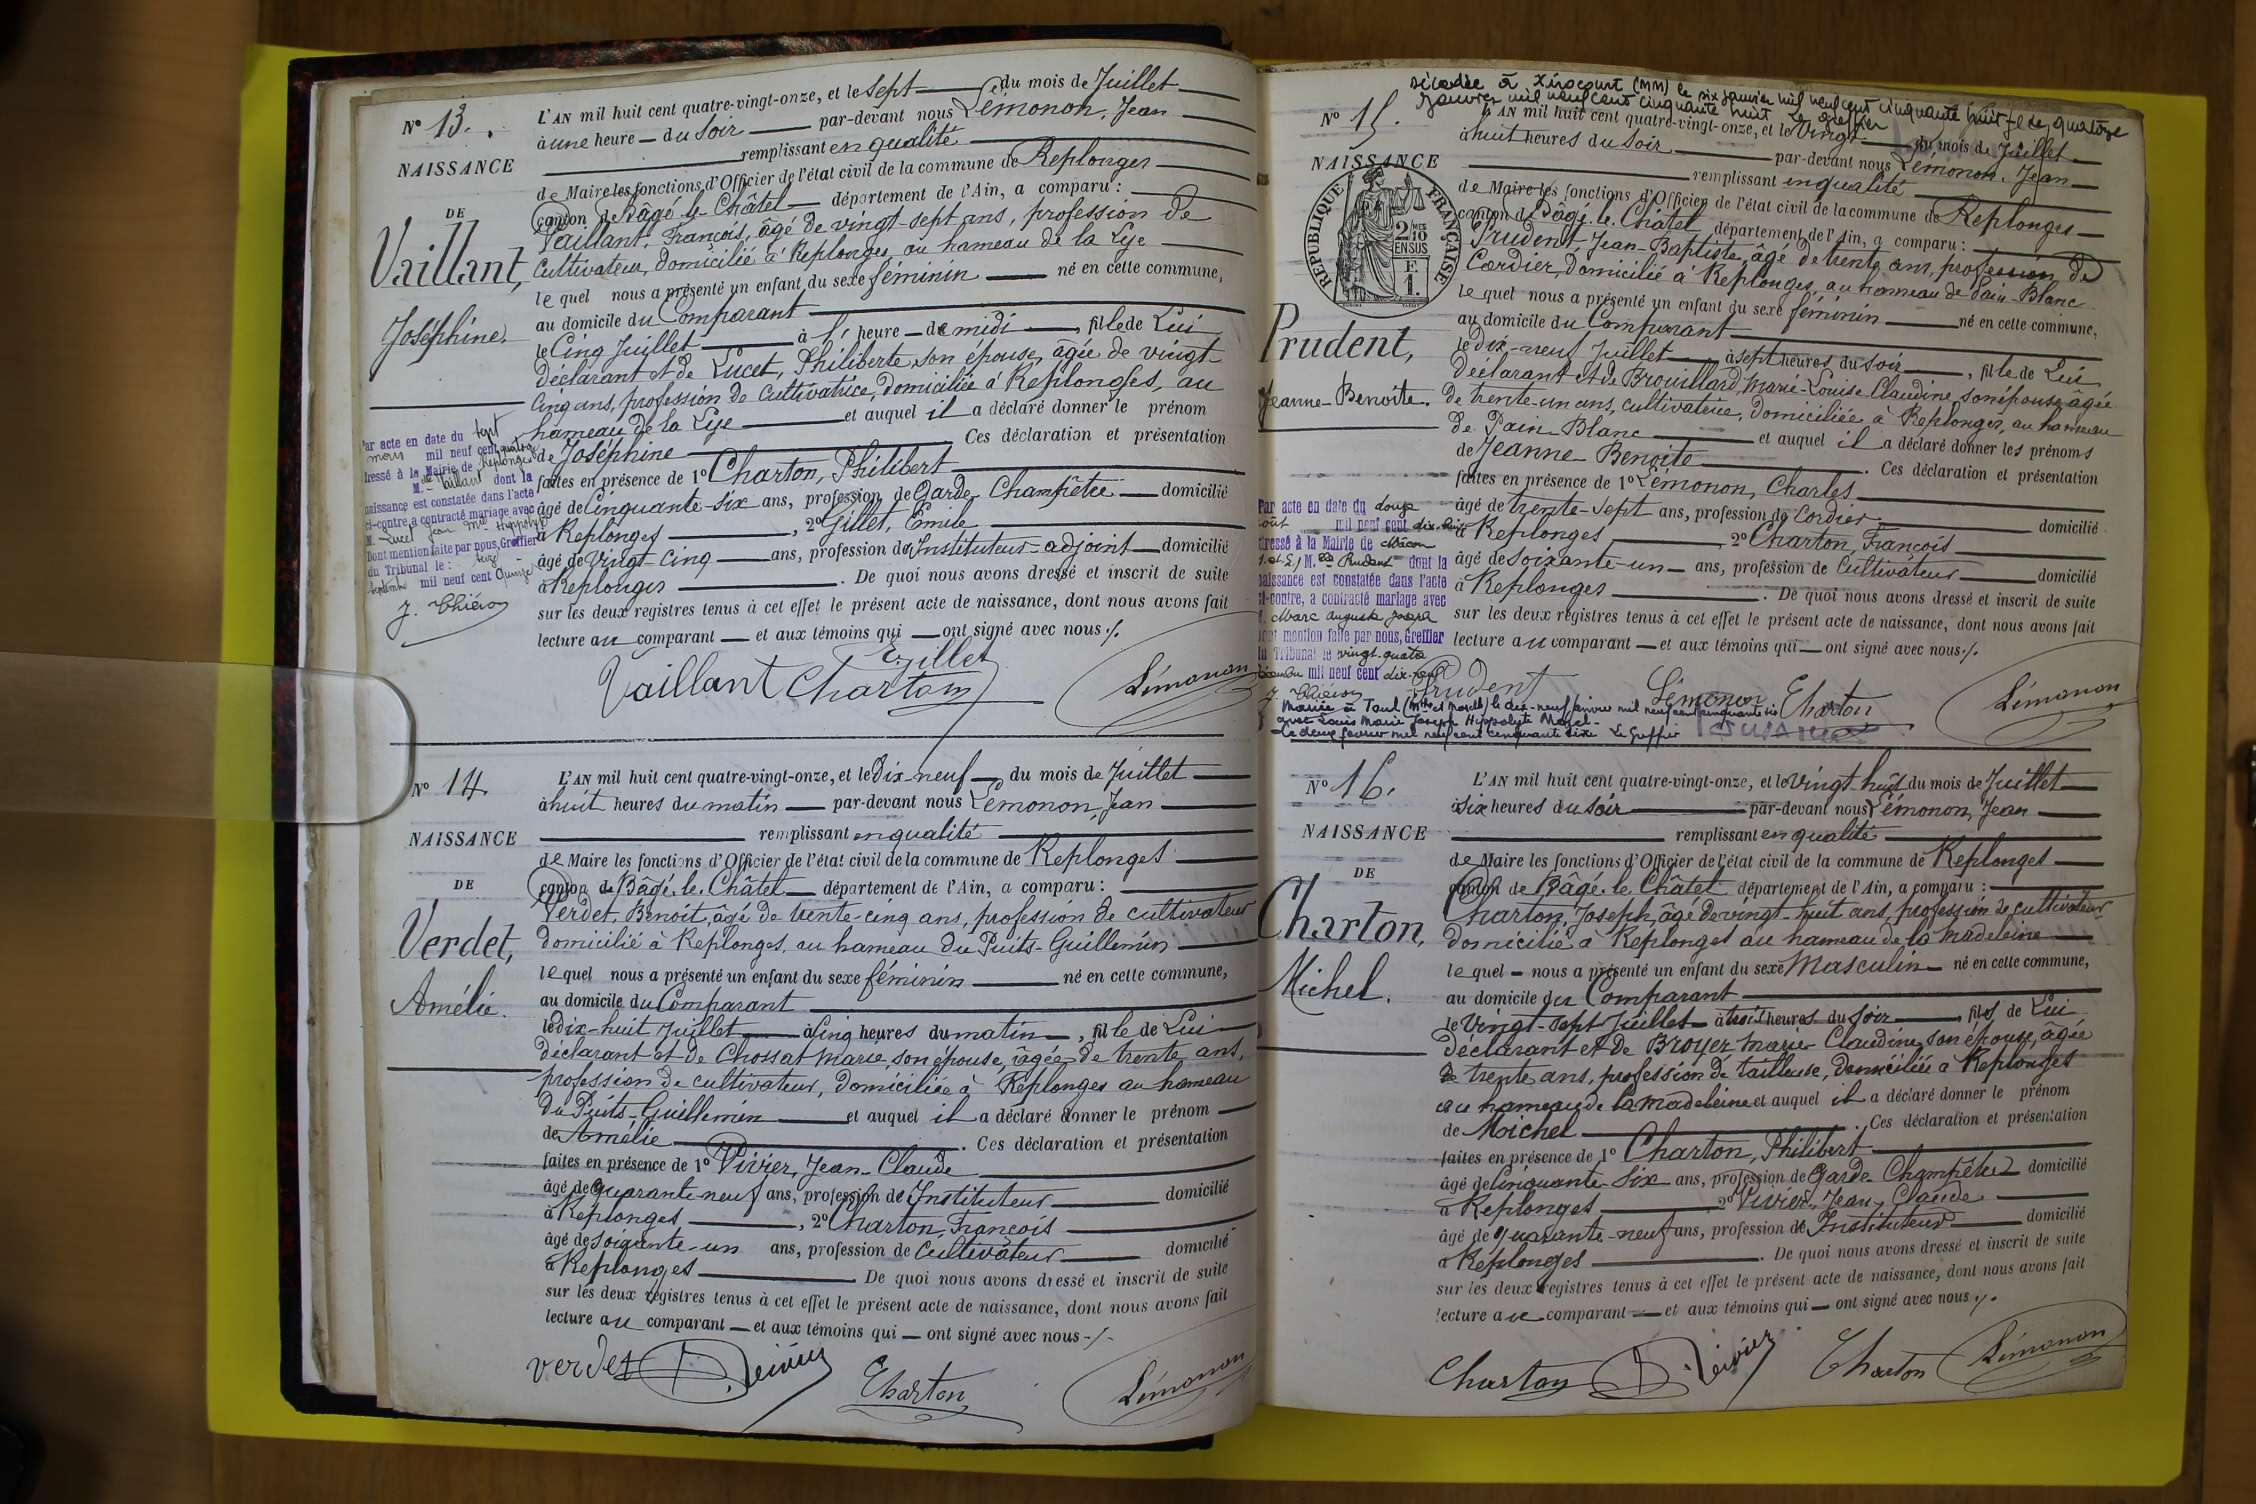 L'AN mil huit cent quatre-vingt-onze, et le Sept du mois de Juillet
N° 13.
à une heure du soir par-devant nous Lémonon, Jean
remplissant en qualité
NAISSANCE
de Maire les fonctions d'Officier de l'état civil de la commune de Replonges
DE
canton de Bâgé-le-Châtel département de l'Ain, a comparu :
Vaillant, François, âgé de vingt-sept ans, profession de
Vaillant,
Cultivateur, domicilié à Replonges, au hameau de la Lye
le quel nous a présenté un enfant du sexe féminin né en cette commune,
Joséphine.
au domicile du Comparant
le Cinq Juillet à l' heure de midi, fille de Lui
déclarant et de Lucet, Philiberte, son épouse, âgée de vingt
Cinq ans, profession de Cultivatrice, domiciliée à Replonges, au
hameau de la Lye et auquel il a déclaré donner le prénom
de Joséphine Ces déclaration et présentation
faites en présence de 1° Charton, Philibert
âgé de Cinquante-six ans, profession de Garde-Champêtre domicilié
à Replonges, 2° Gillet, Emile
âgé de Vingt-Cinq ans, profession d'Instituteur-adjoint domicilié
à Replonges. De quoi nous avons dressé et inscrit de suite
sur les deux registres tenus à cet effet le présent acte de naissance, dont nous avons fait
lecture au comparant et aux témoins qui ont signé avec nous ./.
Par acte en date du sept
mars mil neuf cent quatorze
dressé à la Mairie de Replonges
M. elle Vaillant dont la
naissance est constatée dans l'acte
ci-contre a contracté mariage avec
M. Lucet Jean Mie Hippolyte
Dont mention faite par nous, Greffier
du Tribunal le : treize
septembre mil neuf cent quinze
J. Thiéron
E. Gillet
Vaillant Charton Lémonon
N° 14.
L'AN mil huit cent quatre-vingt-onze, et le Dix-neuf du mois de Juillet
à huit heures du matin par-devant nous Lémonon, Jean
NAISSANCE
remplissant en qualité
de Maire les fonctions d'Officier de l'état civil de la commune de Replonges
DE
canton de Bâgé-le-Châtel département de l'Ain, a comparu :
Verdet, Benoit, âgé de trente-cinq ans, profession de cultivateur
Verdet,
domicilié à Replonges, au hameau du Puits-Guillemin
le quel nous a présenté un enfant du sexe féminin né en cette commune,
Amélie.
au domicile du Comparant
le dix-huit Juillet à Cinq heures du matin, fille de Lui
déclarant et de Chossat Marie, son épouse, âgée de trente ans,
profession de cultivateur, domiciliée à Replonges au hameau
du Puits-Guillemin et auquel il a déclaré donner le prénom
de Amélie. Ces déclaration et présentation
faites en présence de 1° Vivier, Jean-Claude
âgé de quarante-neuf ans, profession d'Instituteur domicilié
à Replonges, 2° Charton, François
âgé de soixante-un ans, profession de Cultivateur domicilié
à Replonges De quoi nous avons dressé et inscrit de suite
sur les deux registres tenus à cet effet le présent acte de naissance, dont nous avons fait
lecture au comparant et aux témoins qui ont signé avec nous ./.
verdet Vivier Charton Lémonon
Décédée à Xirocourt (MM) le six janvier mil neuf cent cinquante huit. Le quatorze
Janvier mil neuf cent cinquante huit Le Greffier
N° 15.
L'AN mil huit cent quatre-vingt-onze, et le Vingt du mois de Juillet
à huit heures du soir par-devant nous Lémonon, Jean
NAISSANCE
remplissant en qualité
de Maire les fonctions d'Officier de l'état civil de la commune de Replonges
REPUBLIQUE FRANÇAISE
2 MES 10
EN SUS
F. 1.
canton de Bâgé-le-Châtel département de l'Ain, a comparu :
Prudent, Jean-Baptiste, âgé de trente ans, profession de
Cordier, domicilié à Replonges, au hameau de Pain-Blanc
le quel nous a présenté un enfant du sexe féminin né en cette commune,
Prudent,
au domicile du Comparant
le dix-neuf Juillet à sept heures du soir, fille de Lui
déclarant et de Brouillard, Marie-Louise Claudine, son épouse, âgée
Jeanne-Benoite.
de trente-un ans, cultivatrice, domiciliée à Replonges, au hameau
de Pain-Blanc et auquel il a déclaré donner les prénoms
de Jeanne-Benoite. Ces déclaration et présentation
faites en présence de 1° Lémonon, Charles
âgé de trente-sept ans, profession de Cordier domicilié
à Replonges 2° Charton, François
âgé de soixante-un ans, profession de Cultivateur domicilié
à Replonges. De quoi nous avons dressé et inscrit de suite
sur les deux registres tenus à cet effet le présent acte de naissance, dont nous avons fait
lecture au comparant et aux témoins qui ont signé avec nous ./.
Par acte en date du douze
août mil neuf cent dix-huit
dressé à la Mairie de Mâcon
M. elle Prudent dont la
naissance est constatée dans l'acte
ci-contre, a contracté mariage avec
M. Marc Auguste Joseph
Dont mention faite par nous, Greffier
du Tribunal le vingt-quatre
mil neuf cent dix-neuf
J. Thiéron
Prudent Lémonon Charton Lémonon
Mariée à Toul (Mthe et Moselle) le dix-neuf janvier mil neuf cent cinquante six
avec Louis Marie Joseph Hippolyte
Le deux février mil neuf cent cinquante six Le Greffier
N° 16.
L'AN mil huit cent quatre-vingt-onze, et le Vingt-huit du mois de Juillet
à Six heures du soir par-devant nous Lémonon, Jean
NAISSANCE
remplissant en qualité
de Maire les fonctions d'Officier de l'état civil de la commune de Replonges
DE
canton de Bâgé-le-Châtel département de l'Ain, a comparu :
Charton, Joseph, âgé de vingt-huit ans, profession de cultivateur
Charton,
domicilié à Replonges au hameau de la Madeleine
le quel nous a présenté un enfant du sexe Masculin né en cette commune,
Michel.
au domicile du Comparant
le Vingt-sept Juillet à trois heures du soir, fils de Lui
déclarant et de Broyer Marie Claudine, son épouse, âgée
de trente ans, profession de tailleuse, domiciliée à Replonges
au hameau de la Madeleine et auquel il a déclaré donner le prénom
de Michel. Ces déclaration et présentation
faites en présence de 1° Charton, Philibert
âgé de Cinquante-Six ans, profession de Garde-Champêtre domicilié
à Replonges 2° Vivier, Jean-Claude
âgé de quarante-neuf ans, profession d'Instituteur domicilié
à Replonges. De quoi nous avons dressé et inscrit de suite
sur les deux registres tenus à cet effet le présent acte de naissance, dont nous avons fait
lecture au comparant et aux témoins qui ont signé avec nous ./.
Charton Vivier Charton Lémonon